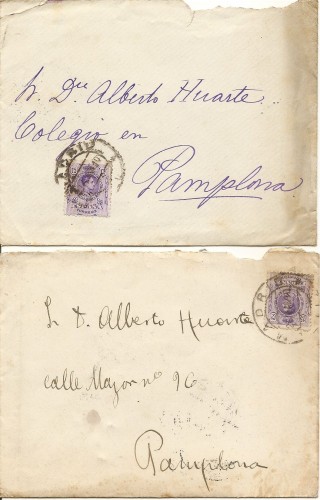 Sr. Dn Alberto Huarte.
Colegio en
Pamplona.
S. D. Alberto Huarte
calle Mayor nº 96
Pamplona